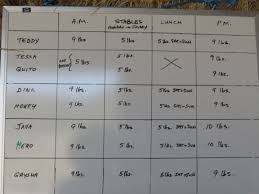 A.M. STABLES LUNCH P.M.
TEDDY 9 lbs. 5 lbs 5 lbs SAT+SUN 9 lbs.
TESSA 5 lbs. 9 lbs.
QUITO 5 lbs. 5 lbs. 9 lbs.
DINA 9 lbs. 5 lbs 5 lbs SAT+SUN 9 lbs.
MONEY 9 lbs. 5 lbs 5 lbs SAT+SUN 9 lbs.
JAVA 9 lbs. 5 lbs 5 lbs SAT+SUN 10 lbs.
HERO 9 lbs. 5 lbs. 5 lbs SAT+SUN 10 lbs.
9 lbs. 5 lbs. 5 lbs SAT+SUN 9 lbs.